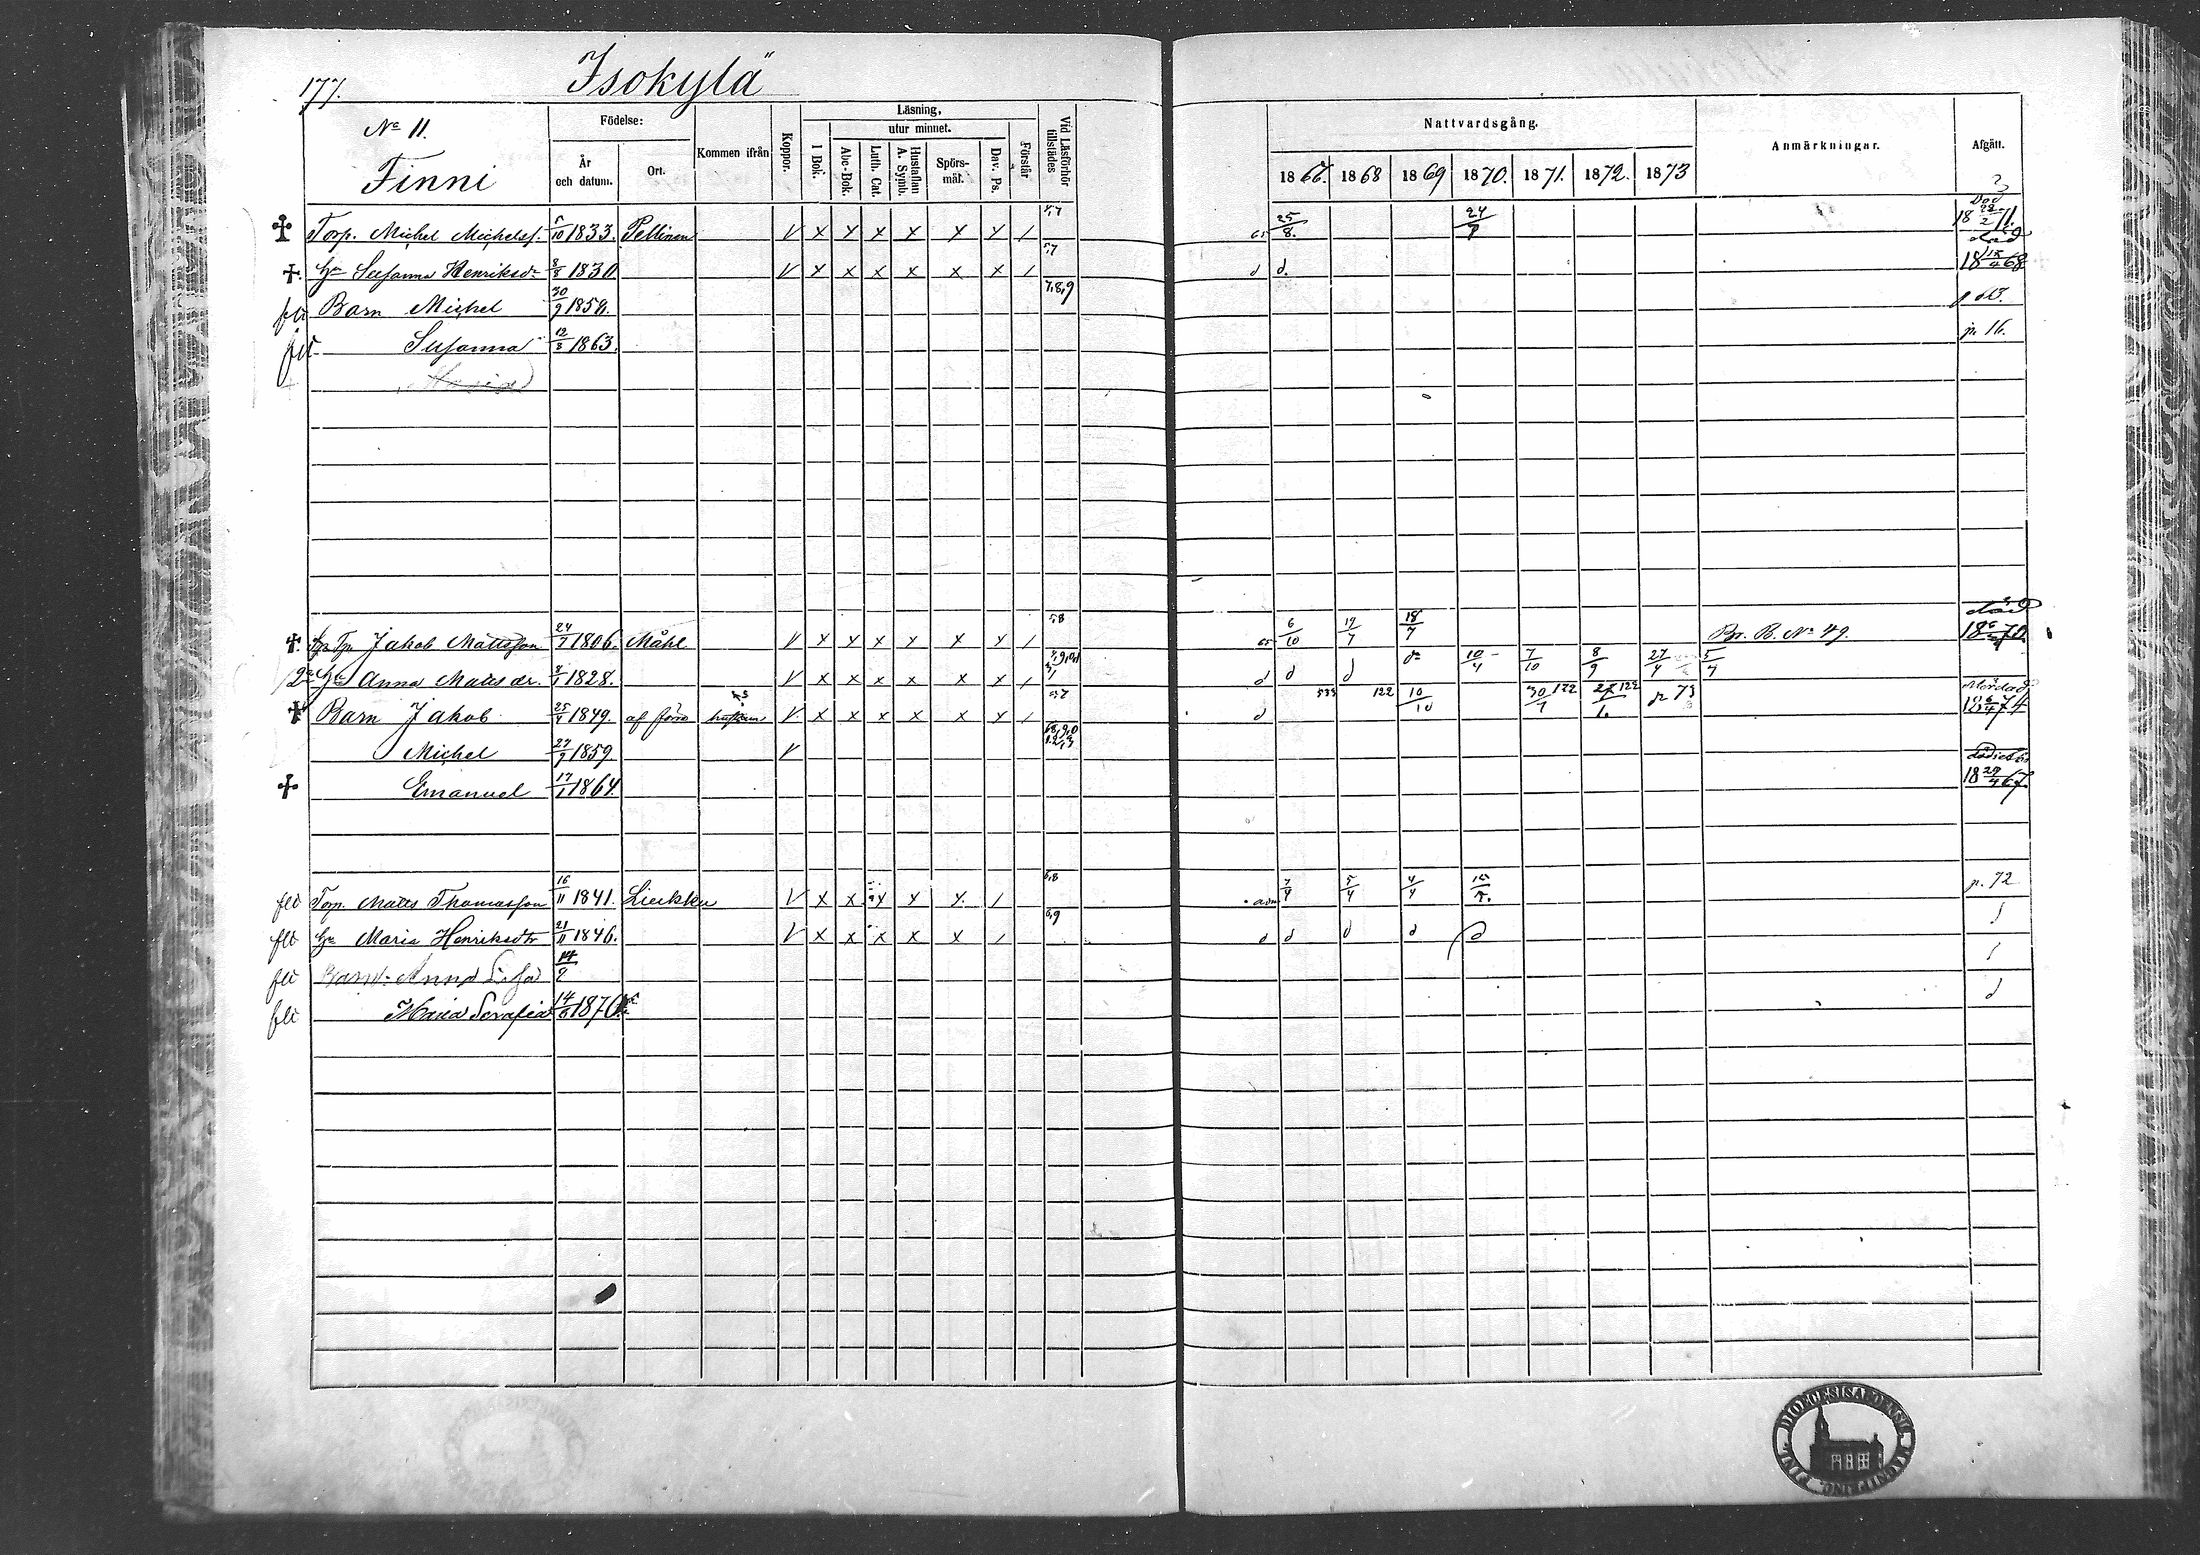 177.
Isokylä
No 11.
Finni
Födelse:
År och datum.
Ort.
Kommen ifrån
Koppor.
Läsning,
utur minnet.
I Bok.
Abc-Bok.
Luth. Cat.
Hustaflan A. Symb.
Spörsmål.
Dav. Ps.
Förstår
Vid Läsförhör tillstädes
Nattvardsgång.
1867. 1868 1869 1870. 1871. 1872. 1873
Anmärkningar.
Afgått.
Torp. Michel Michelss. 5/10 1833. Pellinen V x x x x x x / 5,7 65 25/8. 24/ Död 18 28/2 71.
Hu Susanna Henriksdr 8/8 1830 V x x x x x x / 5,7 d d. död 18 68
flt Barn Michel 30/9 1859. 7,8,9
flt Susanna 12/8 1863. p. 16.
Jakob Mattsson 24/7 1806. Måhl V x x x x x x / 5,8 65 6/10 19/7 18/7 Br. B. No 49. död 18 70
2a Hu Anna Matts dr. 8/1 1828. V x x x x x x / d d d do 10/4 7/10 8/9 27/4 5/7
Barn Jakob 25/4 1849. af förra hustrun V. x x x x x x / 5,7 d 533 122 10/10 30/1 122 122 p 73 18 6/4 74
Michel 27/9 1859. V
Emanuel 17/1 1864. 18 29/4 67.
flt Torp. Matts Thomasson 16/11 1841. Liukku V x x x x x. / 5,8 adm 7/4 5/4 4/4 p. 72
flt Hu Maria Henriksdtr 21/11 1846. V x x x x x / 6,9 d d d d d d
flt Barn: Anna Lisa 14/9 d
flt Maria Serafia 14/6 1870. d
DIOECESIS ABOENSIS